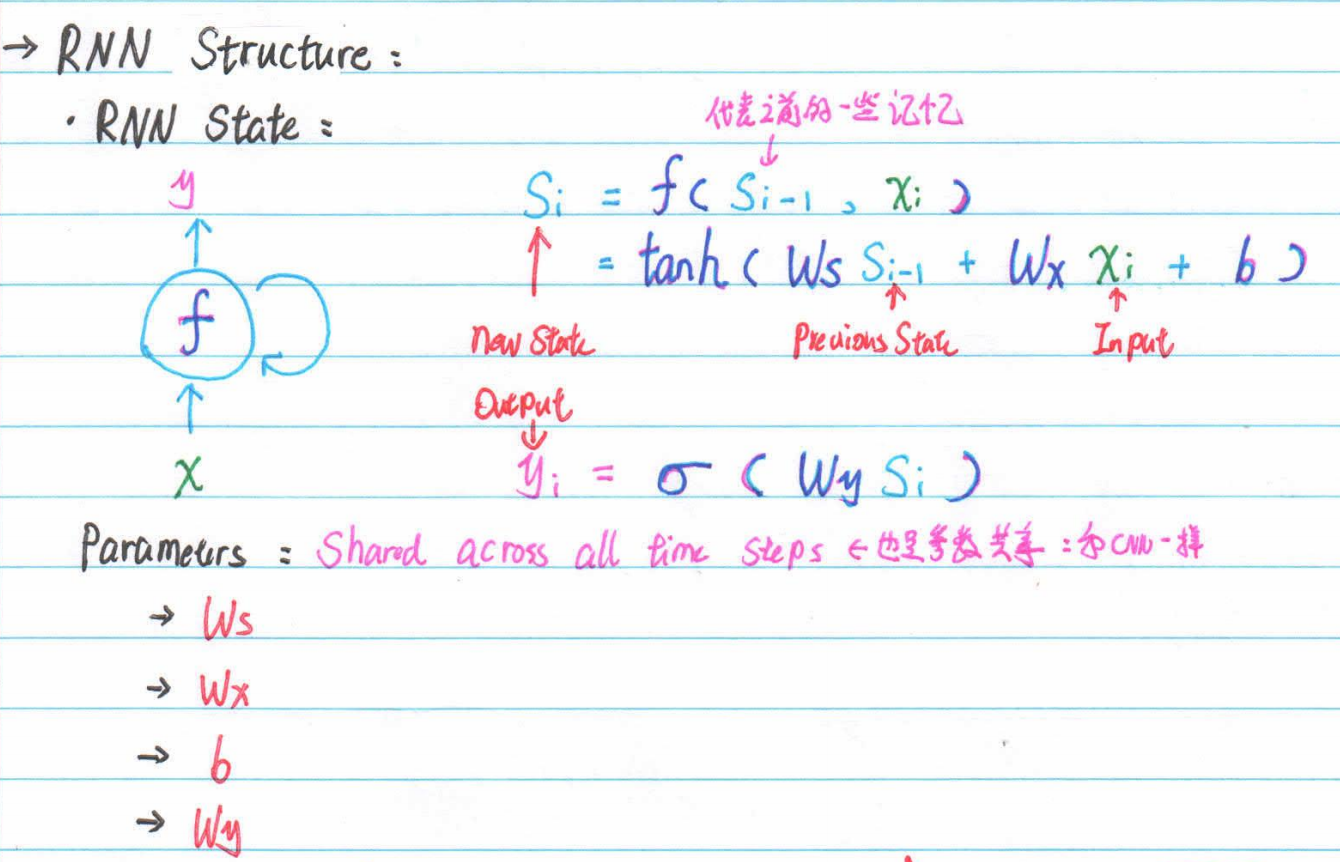 → RNN Structure :
· RNN State :
代表之前的一些记忆
y
Si = f( Si-1 , xi )
= tanh ( Ws Si-1 + Wx xi + b )
f
New State
Previous State
Input
Output
x
yi = σ ( Wy Si )
Parameters : Shared across all time steps ← 也是参数共享 : 和CNN一样
→ Ws
→ Wx
→ b
→ Wy